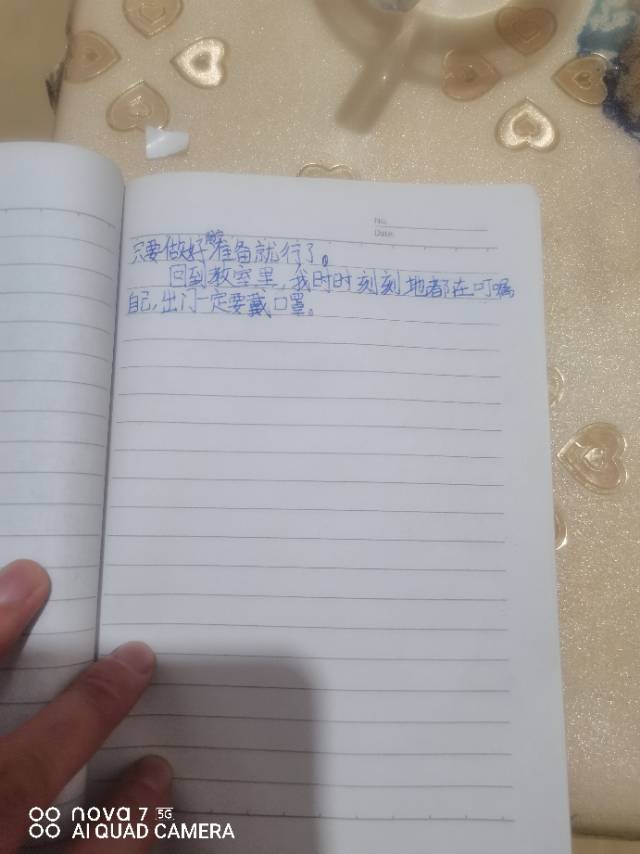 No.
Date:
只要做好准备就行了。
回到教室里,我时时刻刻地都在叮嘱
自己,出门一定要戴口罩。
nova 7 5G
AI QUAD CAMERA